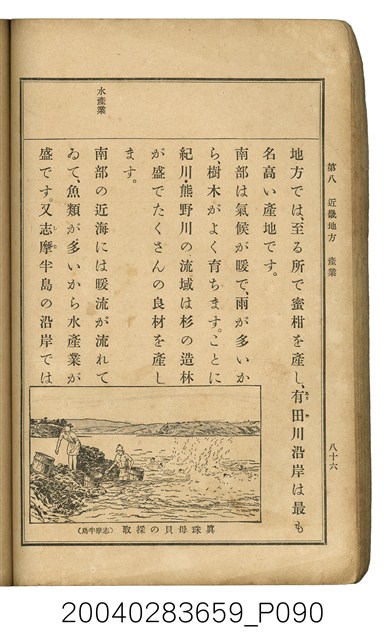 第八 近畿地方 産業
八十六
水産業
地方では、至る所で蜜柑を産し、有田川沿岸は最も
名高い産地です。
南部は氣候が暖で、雨が多いか
ら、樹木がよく育ちます。ことに
紀川・熊野川の流域は杉の造林
が盛でたくさんの良材を産し
ます。
南部の近海には暖流が流れて
ゐて、魚類が多いから水産業が
盛です。又志摩半島の沿岸では
眞珠母貝の採取(志摩半島)
20040283659_P090